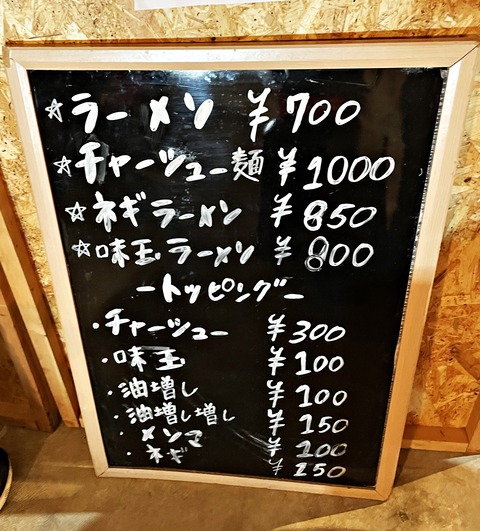 ☆ラーメン ¥700
☆チャーシュー麺 ¥1000
☆ネギラーメン ¥850
☆味玉ラーメン ¥800
ートッピングー
・チャーシュー ¥300
・味玉 ¥100
・油増し ¥100
・油増し増し ¥150
・メンマ ¥100
・ネギ ¥150